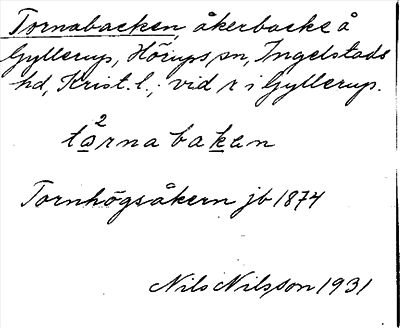 Tornabacken, åkerbacke å
Gyllerup, Hörups sn, Ingelstads
hd, Krist. l., vid r i Gyllerup.
2
tornabaken
Tornhögsåkern jb 1874
Nils Nilsson 1931